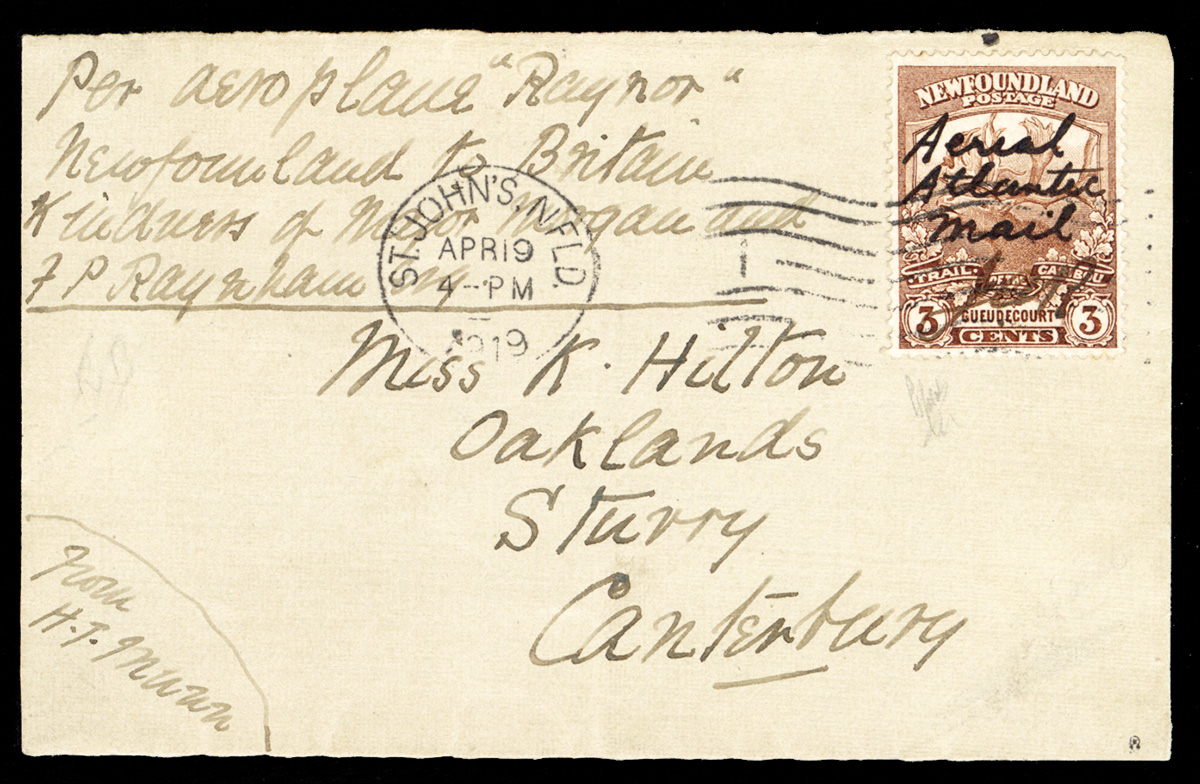 Per aeroplane "Raynor"
Newfoundland to Britain
Kindness of Major Morgan and
F P Raynham Esq
ST. JOHN'S, N'F'L'D.
APR 19
4--PM
1919
1
NEWFOUNDLAND
POSTAGE
Aerial
Atlantic
Mail
TRAIL OF THE CARIBOU
GUEUDECOURT
3 CENTS 3
Miss K. Hilton
Oaklands
Sturry
Canterbury
From
H.T. Munn